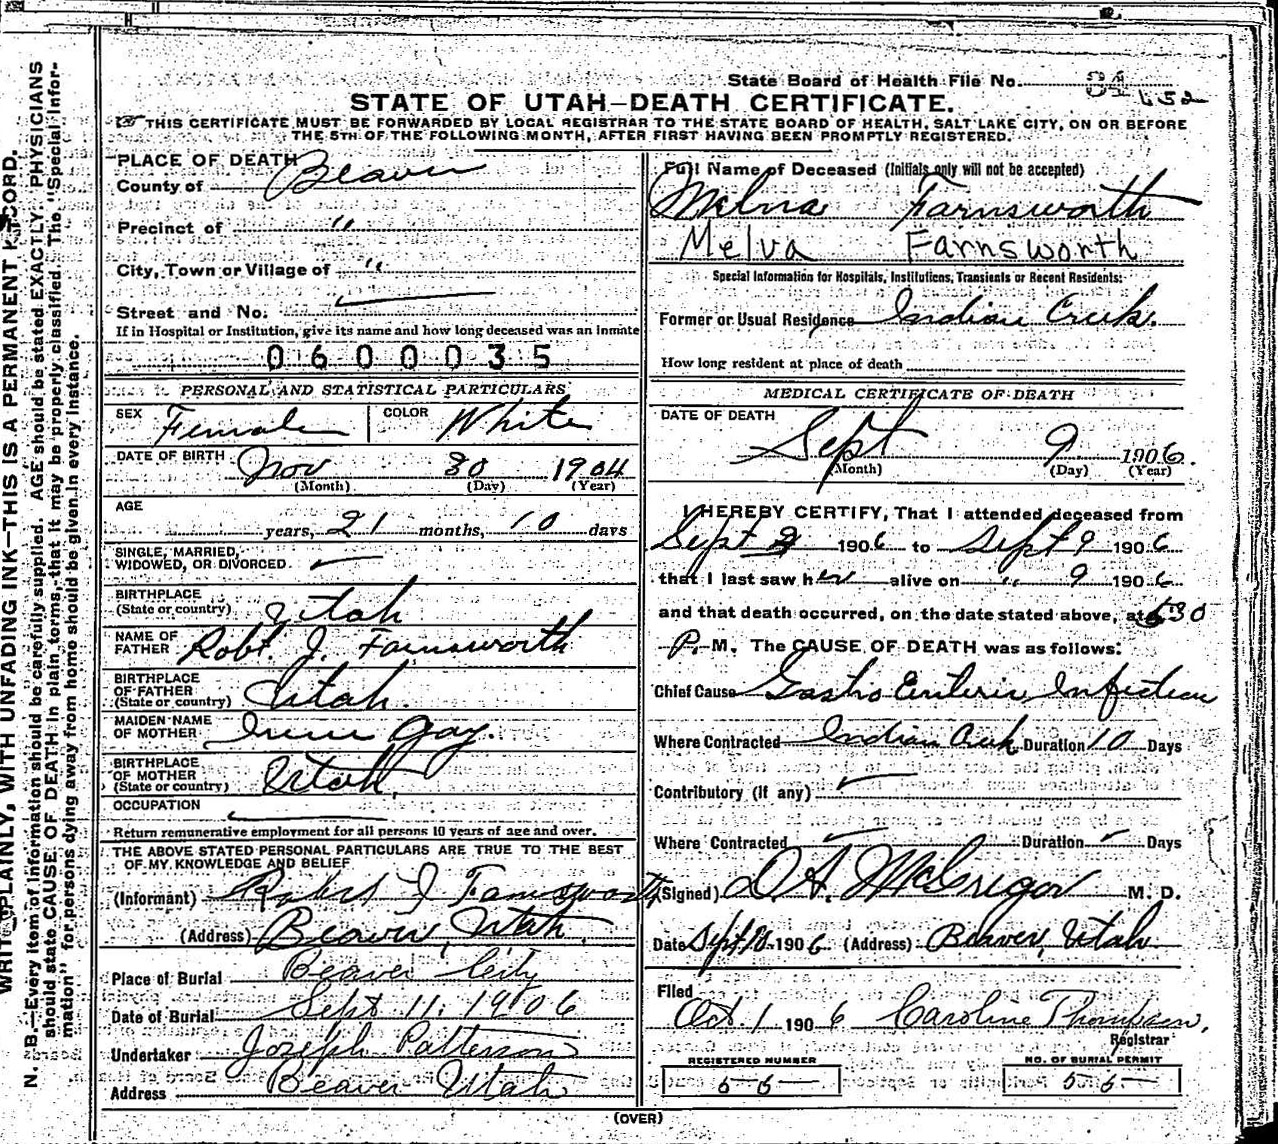 State Board of Health File No. 81 452
STATE OF UTAH—DEATH CERTIFICATE.
THIS CERTIFICATE MUST BE FORWARDED BY LOCAL REGISTRAR TO THE STATE BOARD OF HEALTH, SALT LAKE CITY, ON OR BEFORE
THE 5TH OF THE FOLLOWING MONTH, AFTER FIRST HAVING BEEN PROMPTLY REGISTERED.
WRITE PLAINLY, WITH UNFADING INK—THIS IS A PERMANENT RECORD.
N. B.—Every item of information should be carefully supplied. AGE should be stated EXACTLY. PHYSICIANS
should state CAUSE OF DEATH in plain terms, that it may be properly classified. The "Special Infor-
mation" for persons dying away from home should be given in every instance.
PLACE OF DEATH
County of Beaver
Precinct of "
City, Town or Village of "
Street and No.
If in Hospital or Institution, give its name and how long deceased was an inmate
0600035
PERSONAL AND STATISTICAL PARTICULARS
SEX Female COLOR White
DATE OF BIRTH Nov 30 1904
(Month) (Day) (Year)
AGE
years, 21 months, 10 days
SINGLE, MARRIED,
WIDOWED, OR DIVORCED
BIRTHPLACE
(State or country) Utah
NAME OF
FATHER Robt. J. Farnsworth
BIRTHPLACE
OF FATHER
(State or country) Utah.
MAIDEN NAME
OF MOTHER Irene Gay.
BIRTHPLACE
OF MOTHER
(State or country) Utah.
OCCUPATION
Return remunerative employment for all persons 10 years of age and over.
THE ABOVE STATED PERSONAL PARTICULARS ARE TRUE TO THE BEST
OF MY KNOWLEDGE AND BELIEF
(Informant) Robert J Farnsworth
(Address) Beaver, Utah.
Place of Burial Beaver City
Date of Burial Sept 11. 1906
Undertaker Jozeph Patterson
Address Beaver Utah
Full Name of Deceased (Initials only will not be accepted)
Melva Farnsworth
Melva Farnsworth
Special Information for Hospitals, Institutions, Transients or Recent Residents:
Former or Usual Residence Indian Creek.
How long resident at place of death
MEDICAL CERTIFICATE OF DEATH
DATE OF DEATH
Sept 9 1906.
(Month) (Day) (Year)
I HEREBY CERTIFY, That I attended deceased from
Sept 1906 to Sept 9 1906
that I last saw her alive on " 9 1906
and that death occurred, on the date stated above, at 630
P. M. The CAUSE OF DEATH was as follows:
Chief Cause Gastro Enteric Infection
Where Contracted Indian Creek Duration 10 Days
Contributory (if any)
Where Contracted Duration Days
(Signed) D.A. McGregor M. D.
Date Sept 10 1906 (Address) Beaver, Utah
Filed
Oct 1 1906 Caroline Thompson,
Registrar
REGISTERED NUMBER NO. OF BURIAL PERMIT
55 55
(OVER)